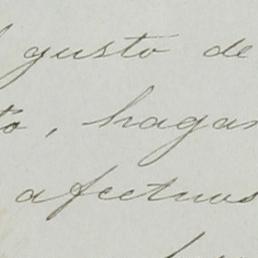 gusto de
to, hagan
afectuos